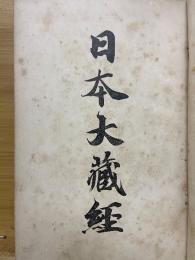 日本大藏經